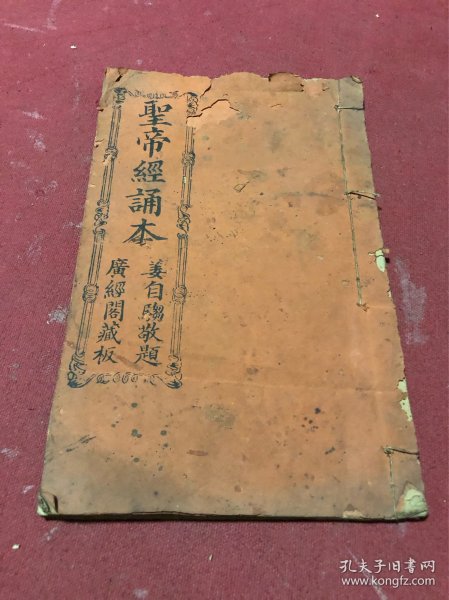 聖帝經誦本
姜自騶敬題
廣經閣藏板
孔夫子旧书网
www.kongfz.com